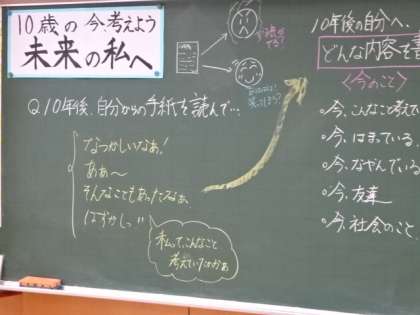 10歳の今、考えよう
未来の私へ
Q.10年後、自分からの手紙を読んで…
なつかしいなぁ!
あぁ〜
そんなこともあったなぁ
はずかしっ
私って、こんなこと
考えていたのかぁ
10年後の自分へ、
どんな内容を書
〈今のこと〉
・今、こんなこと考えてい
・今、はまっている、
・今、なやんでいる
・今、友達
・今、社会のこと、